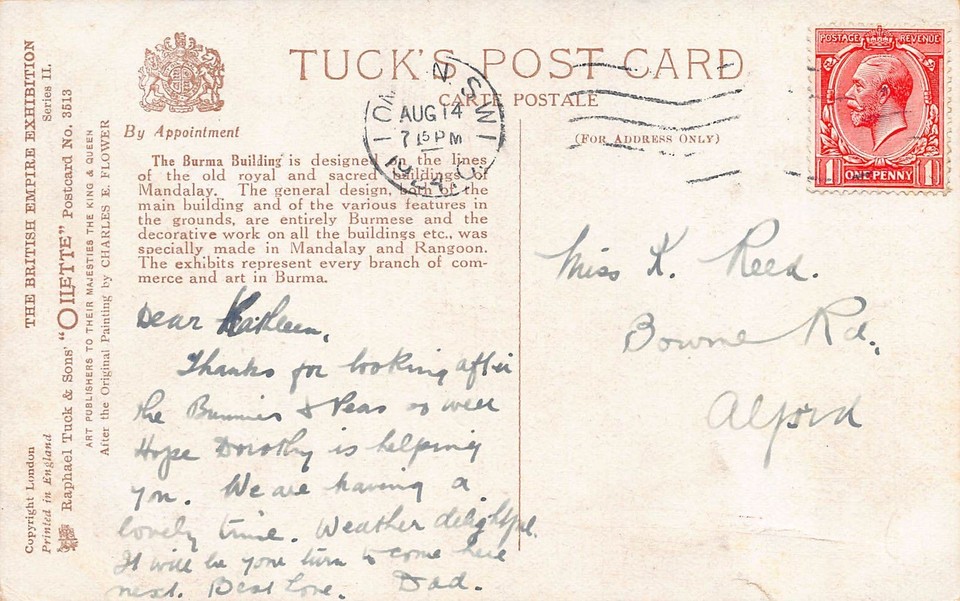 THE BRITISH EMPIRE EXHIBITION
Series II.
Raphael Tuck & Sons' "OILETTE" Postcard No. 3513
ART PUBLISHERS TO THEIR MAJESTIES THE KING & QUEEN
After the Original Painting by CHARLES E. FLOWER
Copyright London
Printed in England
TUCK'S POST CARD
CARTE POSTALE
By Appointment
(FOR ADDRESS ONLY)
LONDON S.W.1
AUG 14
7 15 PM
POSTAGE REVENUE
1 ONE PENNY 1
The Burma Building is designed on the lines
of the old royal and sacred buildings of
Mandalay. The general design, both of the
main building and of the various features in
the grounds, are entirely Burmese and the
decorative work on all the buildings etc., was
specially made in Mandalay and Rangoon.
The exhibits represent every branch of com-
merce and art in Burma.
Dear Kathleen,
Thanks for looking after
the Bunnies & Peas so well
Hope Dorothy is helping
you. We are having a
lovely time. Weather delightful.
It will be your turn to come here
next. Best Love. Dad.
Miss K. Reed.
Rd.,
Alford